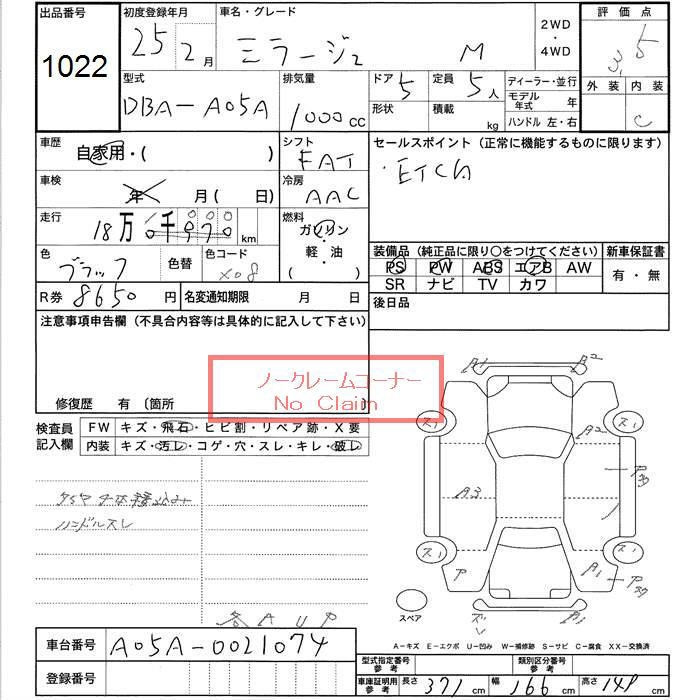 出品番号 初度登録年月 車名・グレード 2WD・4WD 評価点
1022 25 2月 ミラージュ M 3.5
型式 排気量 ドア 5 定員 5人 ディーラー・並行 外装 内装
DBA-A05A 1000cc 形状 積載 kg モデル年式 年 C
ハンドル 左・右
車歴 自家用・( ) シフト FAT セールスポイント (正常に機能するものに限ります)
車検 年 月 ( 日) 冷房 AAC ・ETC
走行 18万0千970km 燃料 ガソリン・軽油 ( )
色 ブラック 色替 色コード X08 装備品 (純正品に限り○をつけてください) 新車保証書
PS PW ABS エアB AW 有・無
R券 8650円 名変通知期限 月 日 SR ナビ TV カワ
注意事項申告欄 (不具合内容等は具体的に記入して下さい) 後日品
ノークレームコーナー
No Claim
修復歴 有 〔箇所 〕
検査員記入欄 FW キズ・飛石・ヒビ割・リペア跡・X要
内装 キズ・汚レ・コゲ・穴・スレ・キレ・破レ
ハンドルスレ
各AUP
A1 A2
ス1 ス1
A2
A3
ス1 ス1
P A1
スペア
A-キズ E-エクボ U-凹み W-補修跡 S-サビ C-腐食 XX-交換済
車台番号 A05A-0021074
登録番号 型式指定番号参考 類別区分番号参考
車庫証明用参考 長さ 371cm 幅 166cm 高さ 149cm